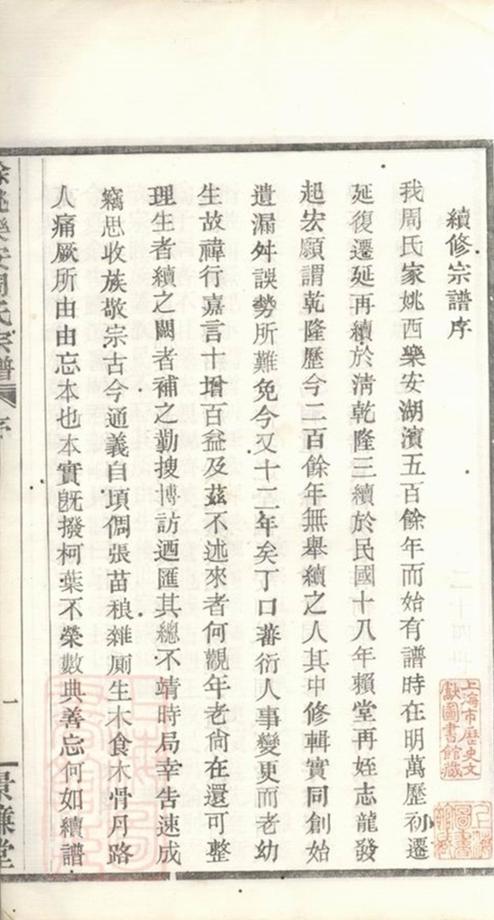 續修宗譜序
我周氏家姚西樂安湖濱五百餘年而始有譜時在明萬歷初遷
延復遷延再續於淸乾隆三續於民國十八年賴堂再姪志龍發
起宏願謂乾隆歷今二百餘年無舉續之人其中修輯實同創始
遺漏舛誤勢所難免今又十二年矣丁口蕃衍人事變更而老幼
生故禕行嘉言十增百益及茲不述來者何觀年老尙在還可整
理生者續之闕者補之勤搜博訪迺匯其總不靖時局幸告速成
竊思收族敬宗古今通義自頃倜張苗稂雜厠生木食木骨丹路
人痛厥所由由忘本也本實旣撥柯葉不榮數典善忘何如續譜
餘姚樂安周氏宗譜
序
一
景濂堂
上海市歷史文
獻圖書館藏